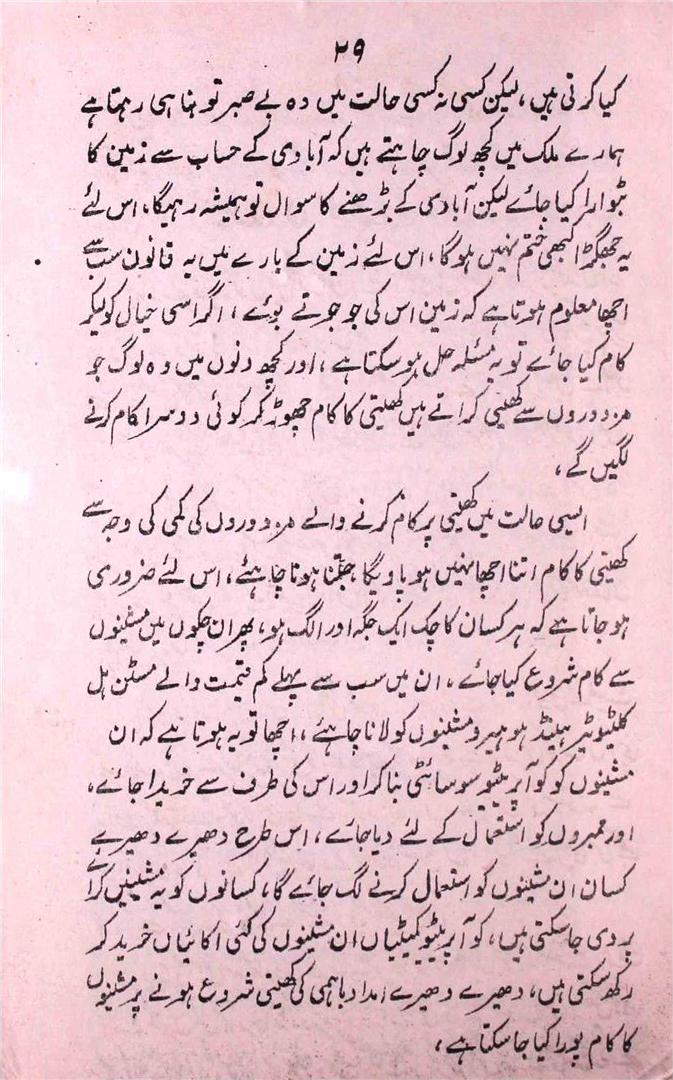 ۲۹
کیا کرتی ہیں، لیکن کسی نہ کسی حالت میں وہ بے صبر تو بنا ہی رہتا ہے
ہمارے ملک میں کچھ لوگ چاہتے ہیں کہ آبادی کے حساب سے زمین کا
بٹوارا کیا جائے لیکن آبادی کے بڑھنے کا سوال تو ہمیشہ رہیگا، اس لئے
یہ جھگڑا کبھی ختم نہیں ہوگا، اس لئے زمین کے بارے میں یہ قانون سب سے
اچھا معلوم ہوتا ہے کہ زمین اس کی جو جوتے بوئے، اگر اسی خیال کو لیکر
کام کیا جائے تو یہ مسئلہ حل ہو سکتا ہے، اور کچھ دنوں میں وہ لوگ جو
مزدوروں سے کھیتی کراتے ہیں کھیتی کا کام چھوڑ کر کوئی دوسرا کام کرنے
لگیں گے،
ایسی حالت میں کھیتی پر کام کرنے والے مزدوروں کی کمی کی وجہ سے
کھیتی کا کام اتنا اچھا نہیں ہو پاویگا جتنا ہونا چاہئے، اس لئے ضروری
ہو جاتا ہے کہ ہر کسان کا چک ایک جگہ اور الگ ہو، پھر ان چکوں میں مشینوں
سے کام شروع کیا جائے، ان میں سب سے پہلے کم قیمت والے مسٹن ہل
کلٹیویٹر ہینڈ ہو ہیرو مشینوں کو لانا چاہئے، اچھا تو یہ ہوتا ہے کہ ان
مشینوں کو کوآپریٹیو سوسائٹی بنا کر اور اس کی طرف سے خریدا جائے،
اور ممبروں کو استعمال کے لئے دیا جائے، اس طرح دھیرے دھیرے
کسان ان مشینوں کو استعمال کرنے لگ جائے گا، کسانوں کو یہ مشینیں کرائے
پر دی جا سکتی ہیں، کوآپریٹیو کمیٹیاں ان مشینوں کی کئی اکائیاں خرید کر
رکھ سکتی ہیں، دھیرے دھیرے امداد باہمی کی کھیتی شروع ہونے پر مشینوں
کا کام پورا کیا جا سکتا ہے،